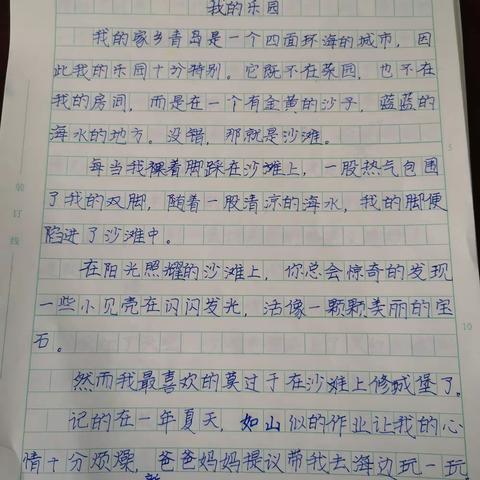 我的乐园
我的家乡青岛是一个四面环海的城市，因
此我的乐园十分特别。它既不在菜园，也不在
我的房间，而是在一个有金黄的沙子，蓝蓝的
海水的地方。没错，那就是沙滩。
每当我裸着脚踩在沙滩上，一股热气包围
了我的双脚，随着一股清凉的海水，我的脚便
陷进了沙滩中。
在阳光照耀的沙滩上，你总会惊奇的发现
一些小贝壳在闪闪发光，活像一颗颗美丽的宝
石。
然而我最喜欢的莫过于在沙滩上修城堡了。
记的在一年夏天，如山似的作业让我的心
情十分烦燥，爸爸妈妈提议带我去海边玩一玩
装订线
5
10